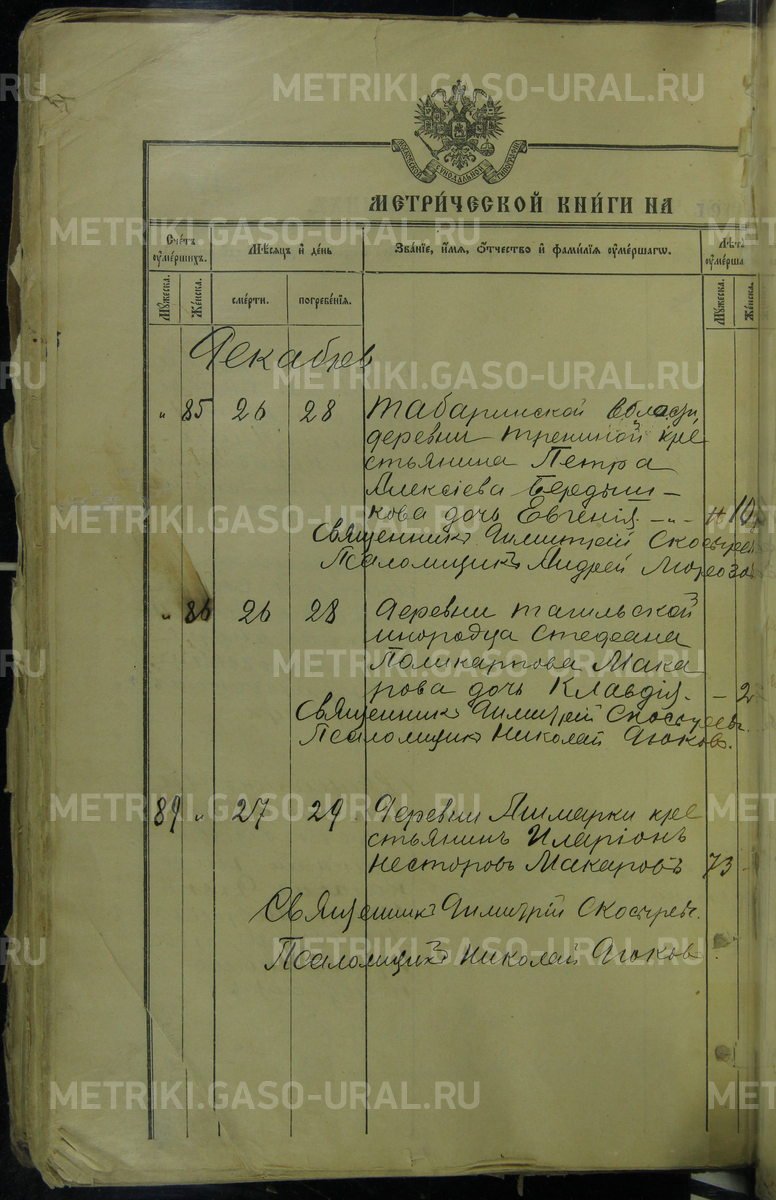 МОСКОВСКОЙ СѴНОДАЛЬНОЙ ТИПОГРАФІИ
МЕТРИ́ЧЕСКОЙ КНИ́ГИ НА
Сче́тъ оуме́ршихъ.
Мѣ́сяцъ и де́нь
Зва́нїе, и́мя, о́тчество и фами́лїя оуме́ршагѡ.
Лѣта оуме́рша
Мꙋ́жеска.
Же́нска.
сме́рти.
погребе́нїя.
Мꙋ́жеска.
Же́нска.
Декабрь
" 85 26 28 Табаринской волости,
деревни Трениной кре
стьянина Петра
Алексіева Бердыш-
кова дочь Евгенія. - " -
Священникъ Димитрій Скосырев
Псаломщикъ Андрей Морозо
" 86 26 28 Деревни Тагильской
инородца Стефана
Поликарпова Мака
рова дочь Клавдія. - 2
Священникъ Димитрій Скосыревъ.
Псаломщикъ Николай Дюков.
89 " 27 29 Деревни Яшмарки кре
стьянинъ Иларіонъ
Несторовъ Макаровъ 73 -
Священникъ Димитрій Скосыревъ.
Псаломщикъ Николай Дюков
METRIKI.GASO-URAL.RU